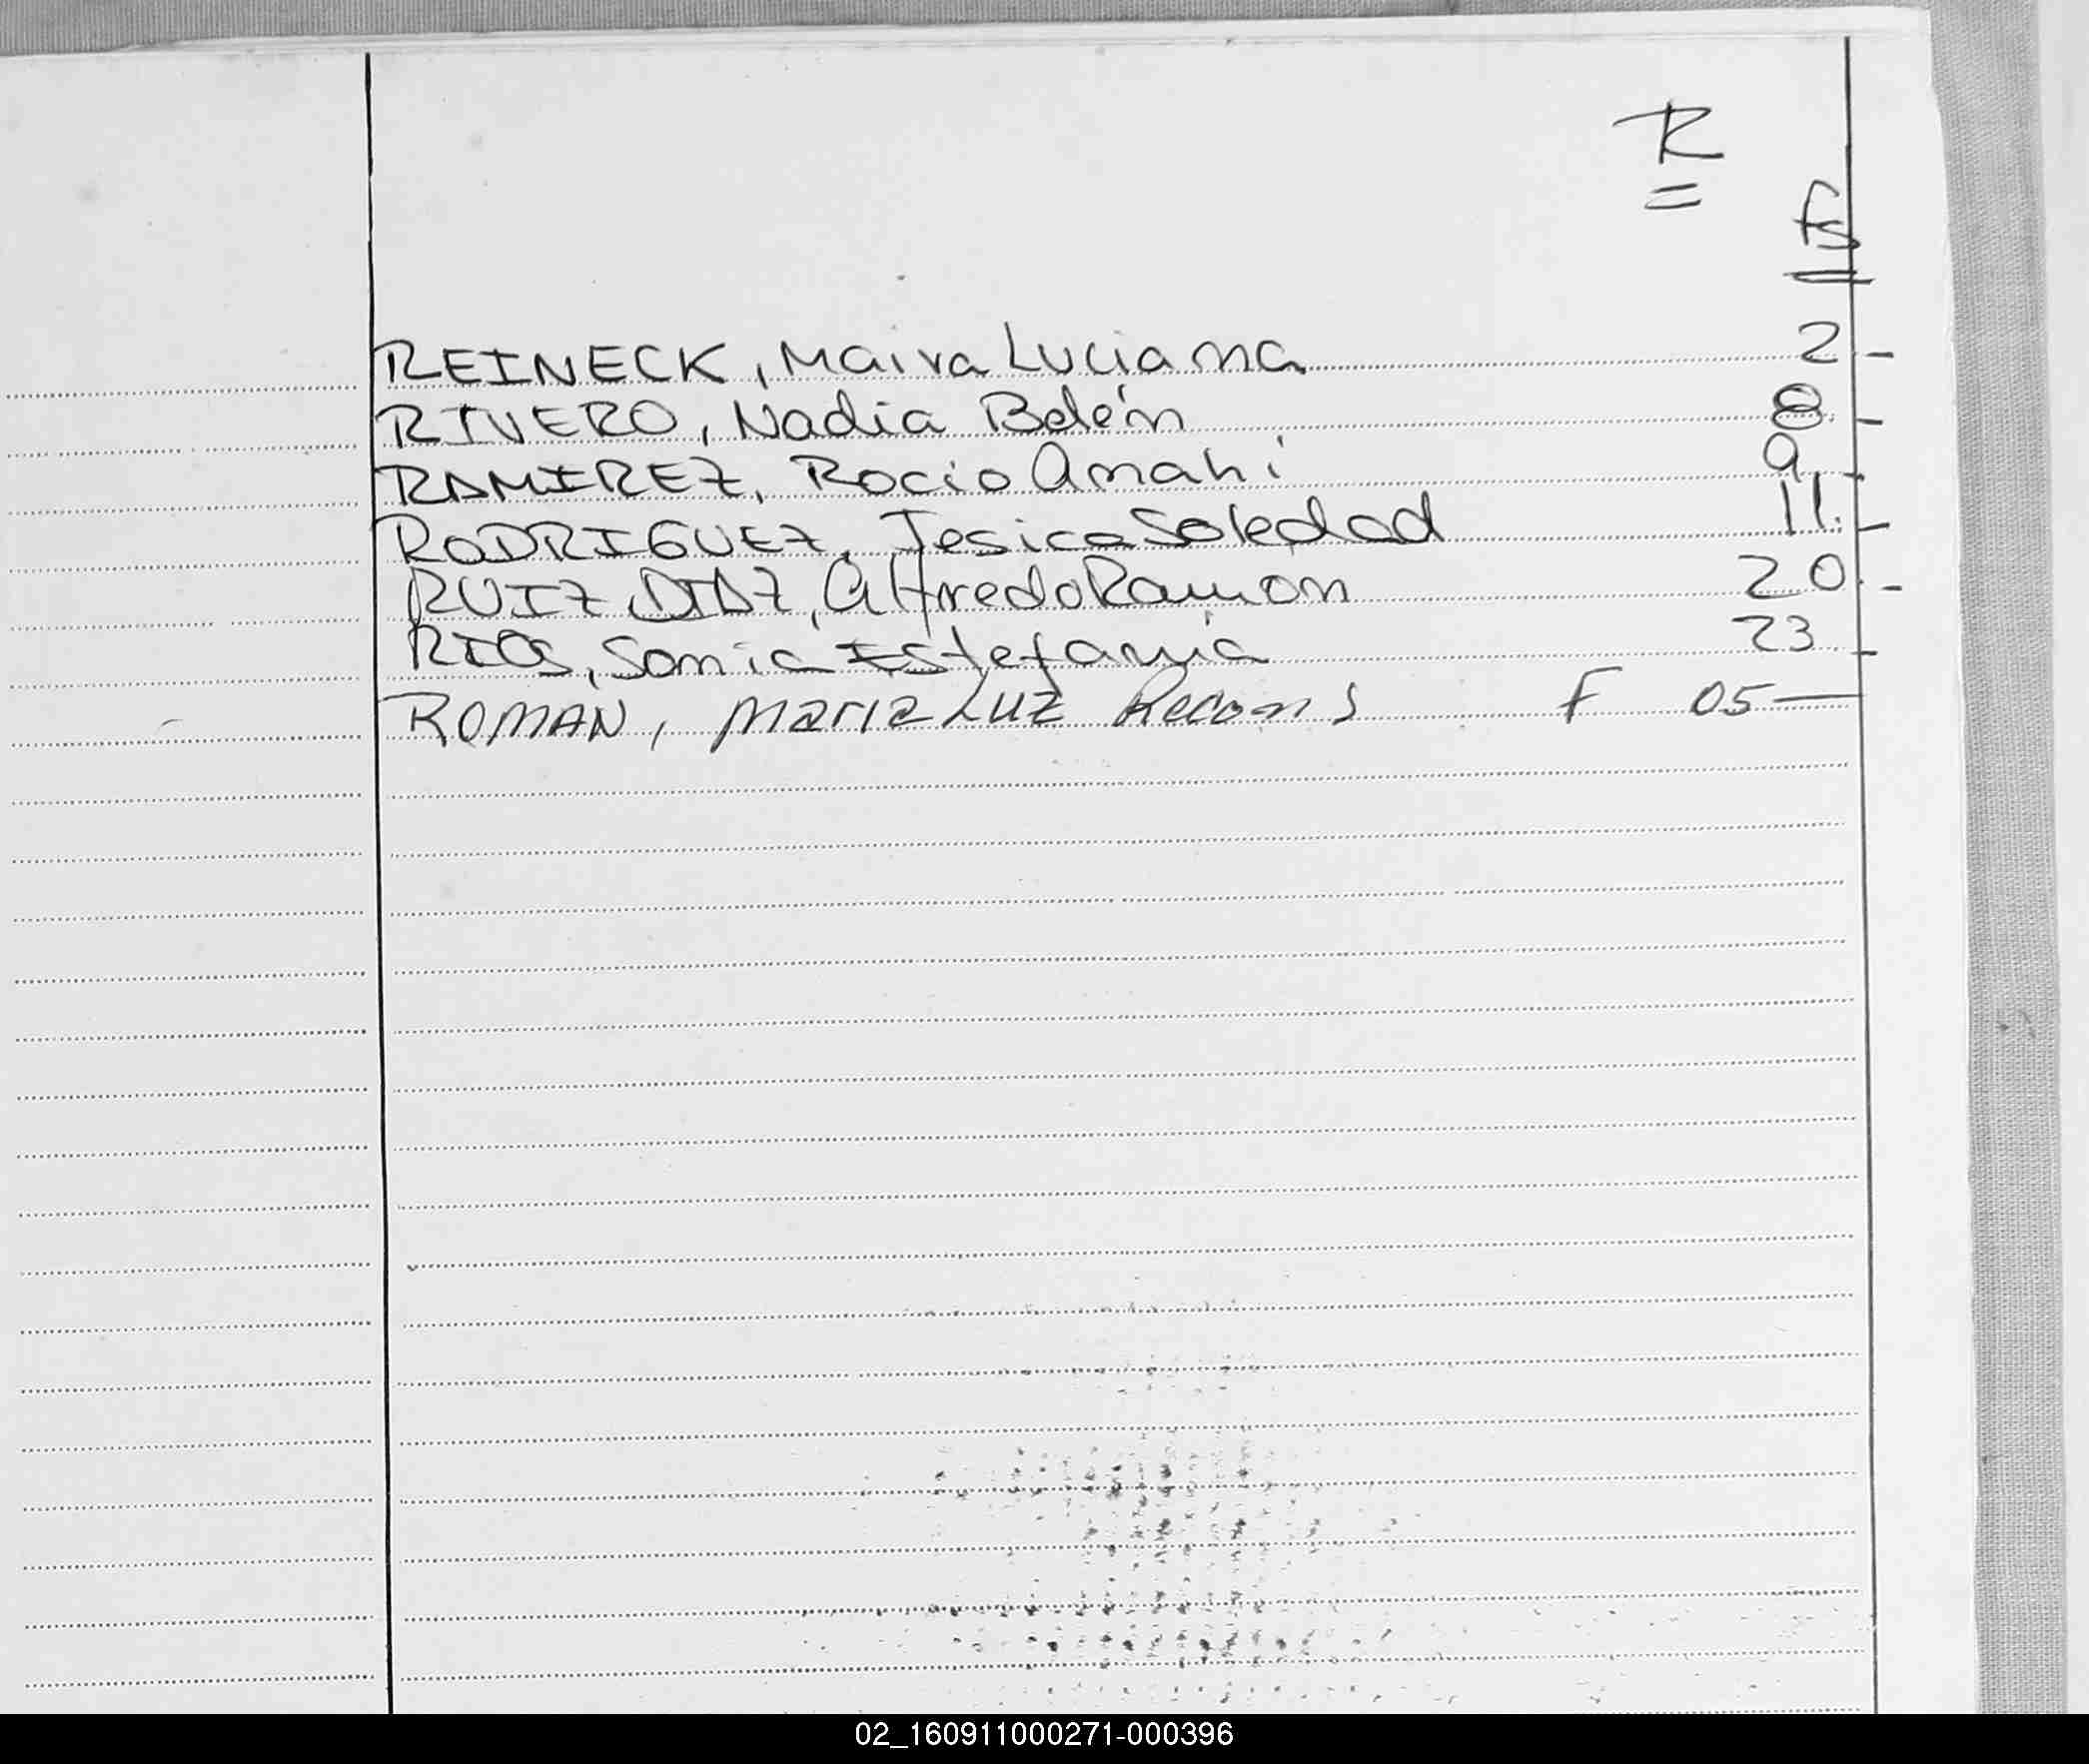 R
fs
REINECK, Maira Luciana 2 -
RIVERO, Nadia Belén 8 -
RAMIREZ, Rocio Anahí 9 -
RODRIGUEZ, Jesica Soledad 11 -
RUIZ DIAZ, Alfredo Ramon 20 -
RIOS, Sonia Estefania 23 -
ROMAN, Maria Luz F 05 -
02_160911000271-000396